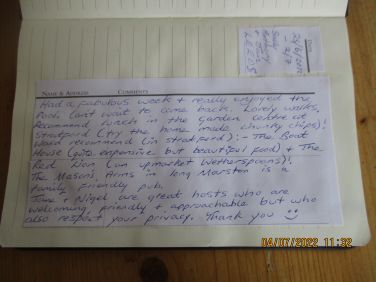 NAME & ADDRESS COMMENTS
Had a fabulous week + really enjoyed the
Pool, Can't wait to come back. Lovely walks,
Recommend Lunch in the garden centre at
Stratford (try the home made chunky chips)!
Would recommend (in Stratford):- The Boat
House (quite expensive but beautiful food) + The
Red Lion (an upmarket Wetherspoons)!
The Masons Arms in Long Marston is a
family friendly pub.
Jane + Nigel are great hosts who are
welcoming, friendly + approachable but who
also respect your privacy. Thank you
LEEDS
04/07/2022 11:32